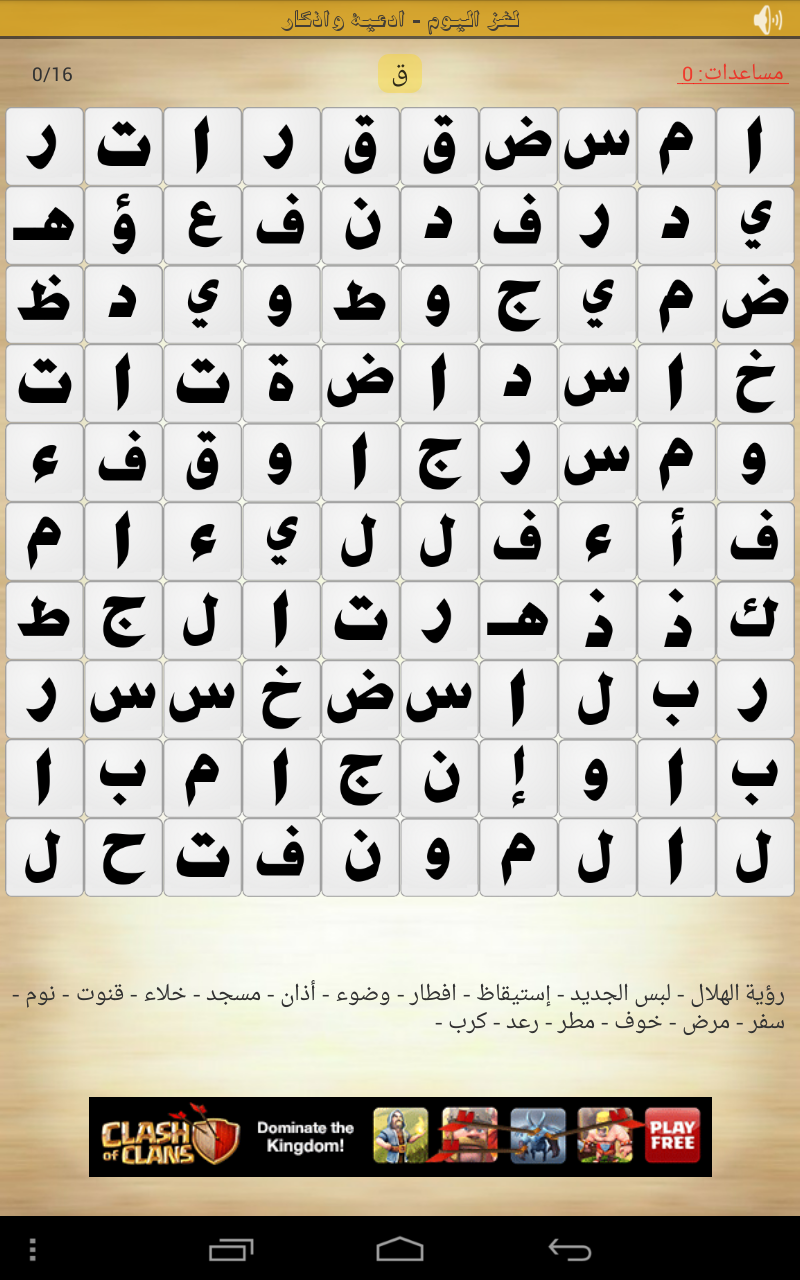 لغز اليوم - ادعية واذكار
مساعدات: 0
ق
0/16
ا م س ض ق ق ر ا ت ر
ي د ر ف د ن ف ع ؤ هـ
ض م ي ج و ط و ي د ظ
خ ا س د ا ض ة ت ا ت
و م س ر ج ا و ق ف ء
ف أ ء ف ل ل ي ء ا م
ك ذ ذ هـ ر ت ا ل ج ط
ر ب ل ا س ض خ س س ر
ب ا و إ ن ج ا م ب ا
ل ا ل م و ن ف ت ح ل
رؤية الهلال - لبس الجديد - إستيقاظ - افطار - وضوء - أذان - مسجد - خلاء - قنوت - نوم -
سفر - مرض - خوف - مطر - رعد - كرب -
CLASH
of CLANS
Dominate the
Kingdom!
PLAY
FREE